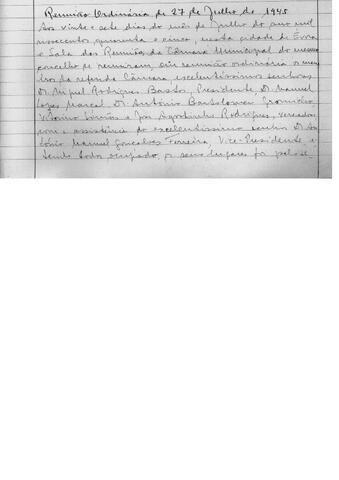 Reunião Ordinária de 27 de Julho de 1945
Aos vinte e sete dias do mês de Julho do ano mil
novecentos quarenta e cinco, nesta cidade de Évora
e Sala das Reuniões da Câmara Municipal do mesmo
concelho se reuniram, em reunião ordinária os mem-
bros da referida Câmara, excelentíssimos senhores
Dr. Miguel Rodrigues Bastos, Presidente, Dr. Manuel
Lopes Marçal, Dr. António Bartolomeu
e José Agostinho Rodrigues, vereadores
com a assistência do excelentíssimo senhor Dr. An-
tónio Manuel Gonçalves Ferreira, Vice-Presidente e
tendo todos ocupado os seus lugares foi pelo se-